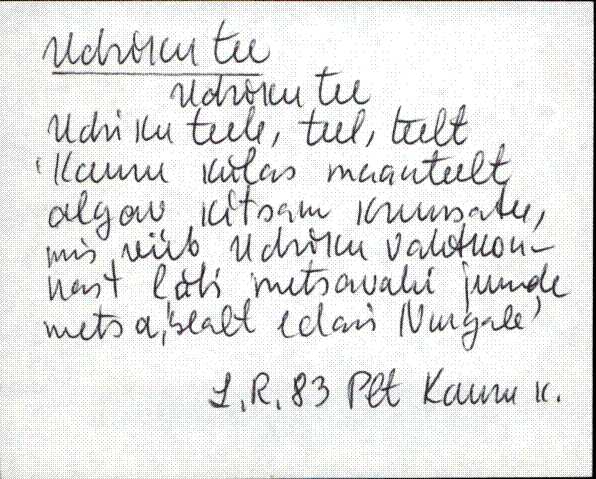 Udriku tee
Udriku tee
Udriku teele, teel, teelt
'Kaunu külas maanteelt
algav kitsam kruusatee,
mis viib Udriku vahtkon-
nast läbi metsavahi juurde
metsa, sealt edasi Nurgale'
L.R. 83 Plt Kaunu k.